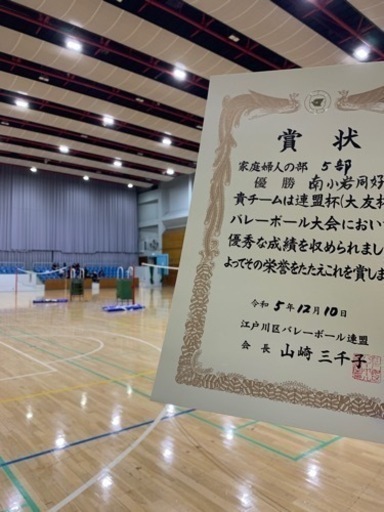 賞状
家庭婦人の部 5部
優勝 南小岩同好
貴チームは連盟杯(大友杯
バレーボール大会におい
優秀な成績を収められまし
よってその栄誉をたたえこれを賞しま
令和5年12月10日
江戸川区バレーボール連盟
会長 山崎三千子